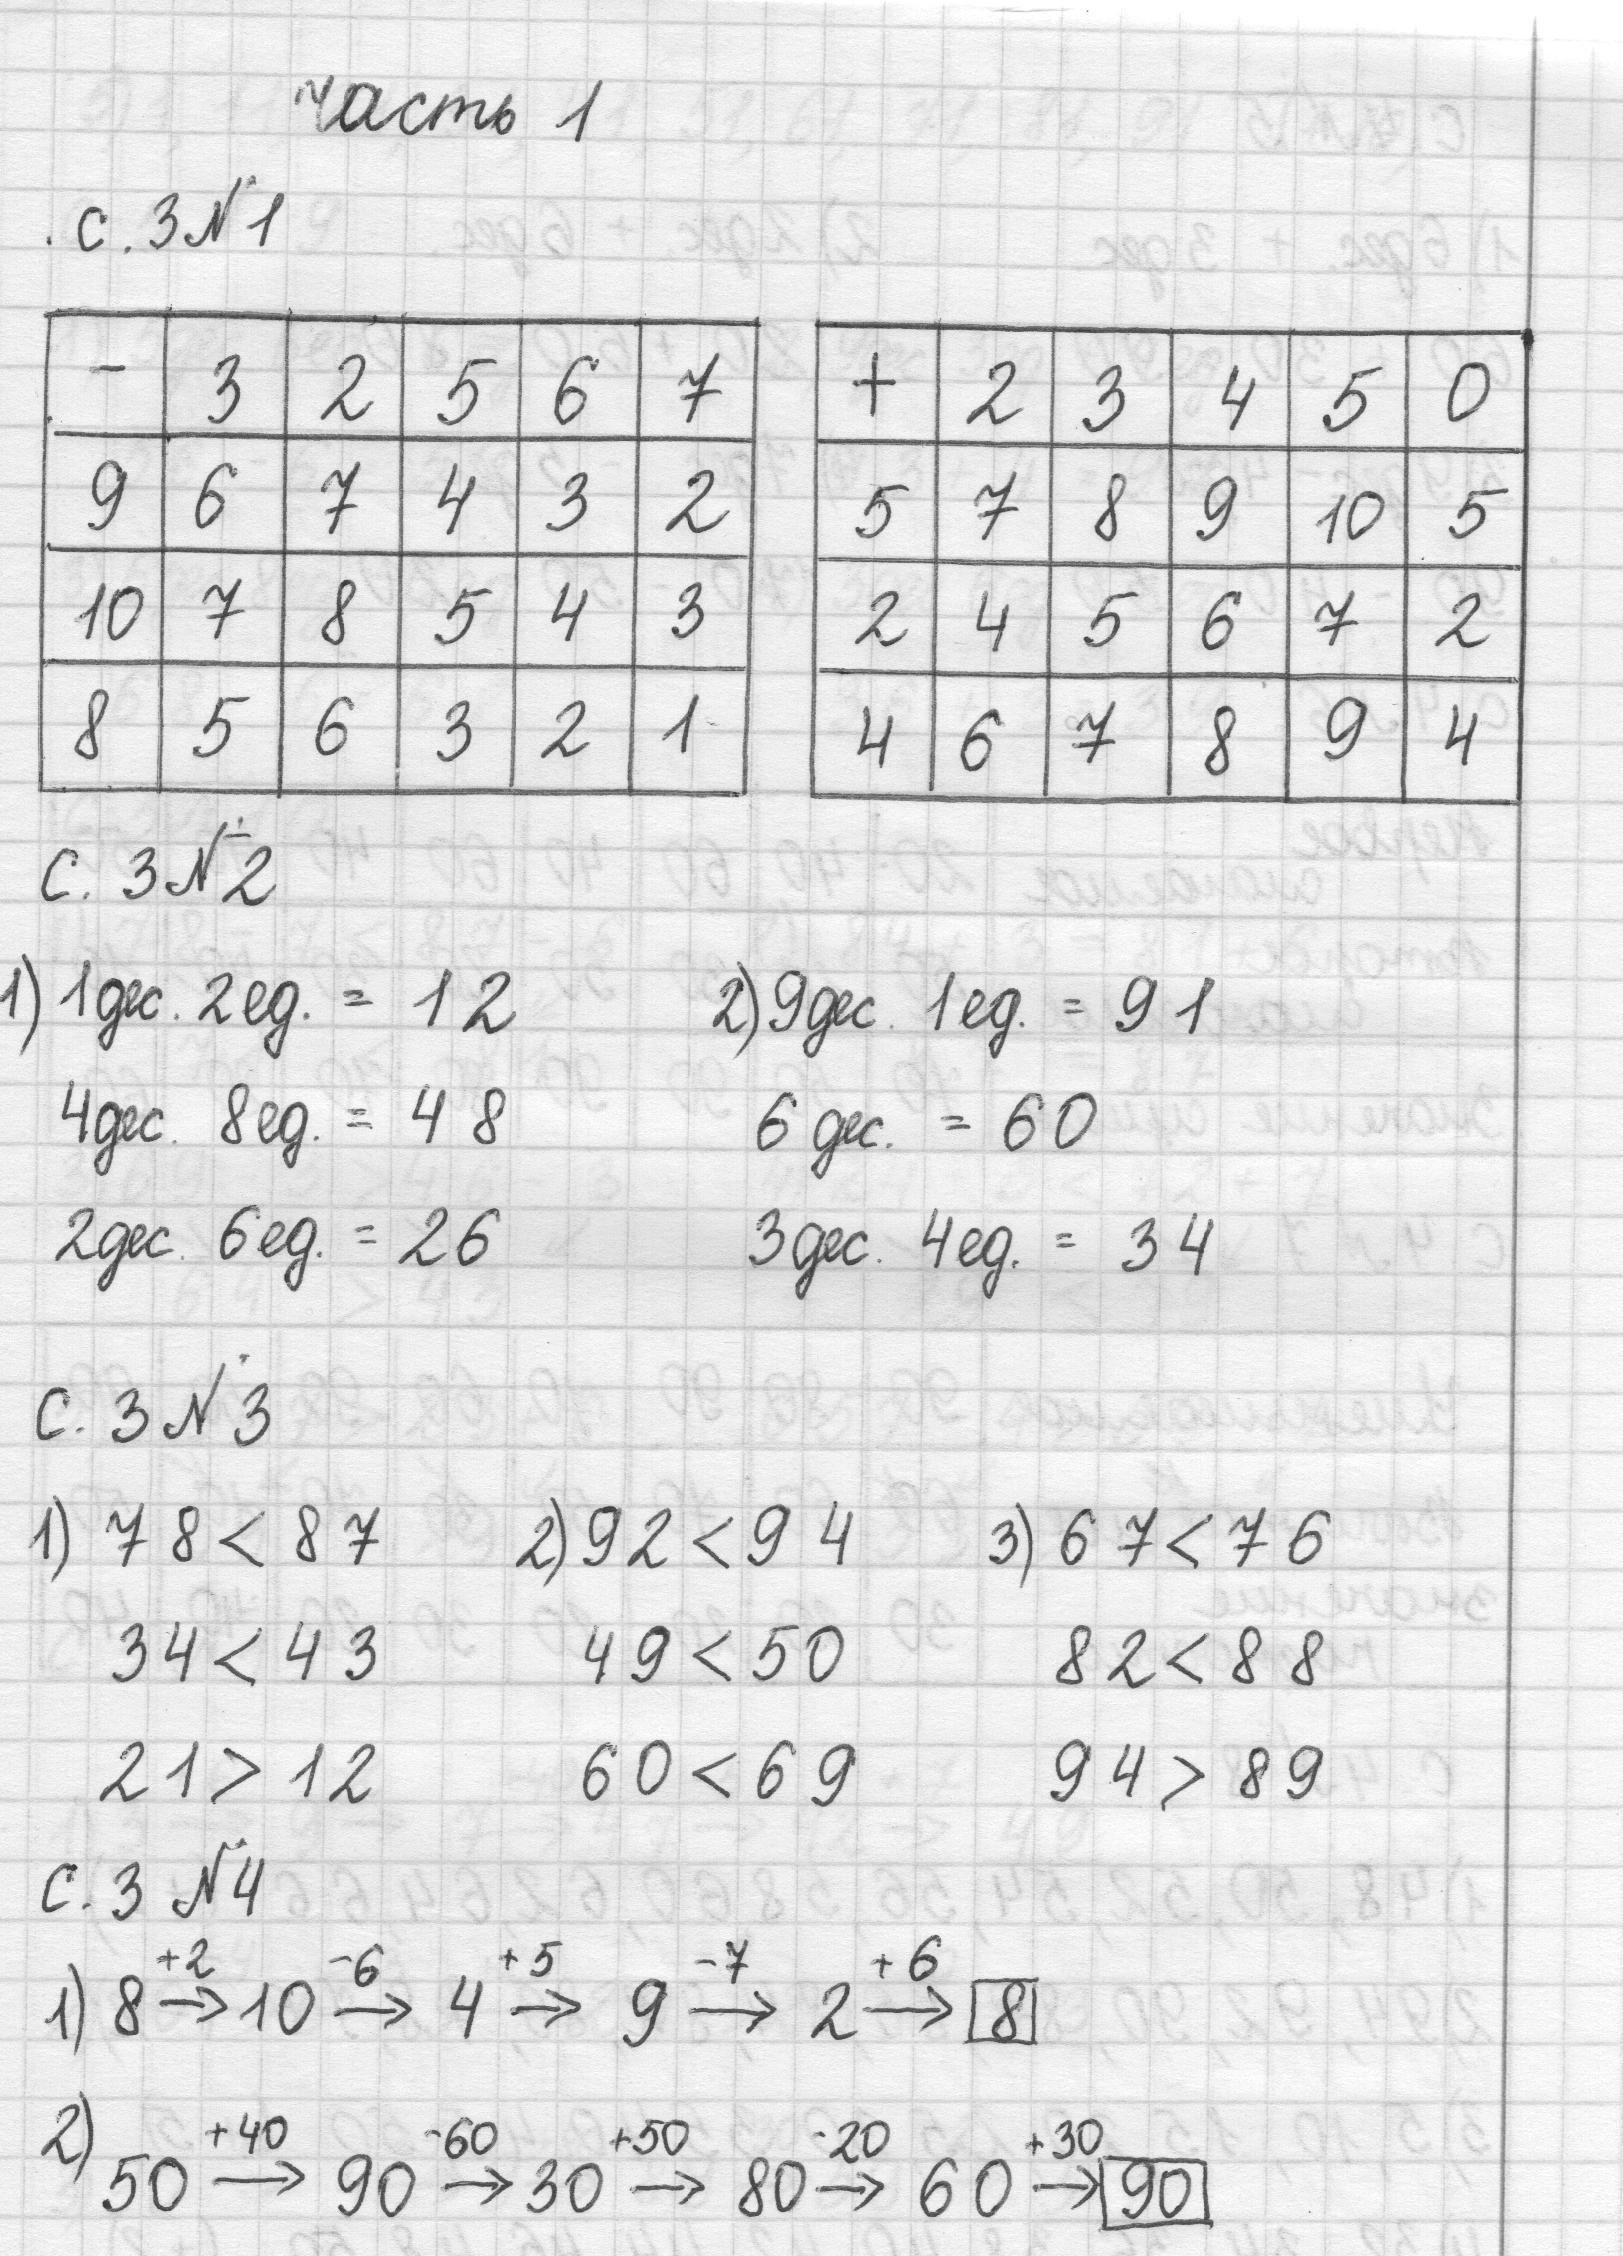 часть 1
с. 3 № 1
- 3 2 5 6 7
9 6 7 4 3 2
10 7 8 5 4 3
8 5 6 3 2 1
+ 2 3 4 5 0
5 7 8 9 10 5
2 4 5 6 7 2
4 6 7 8 9 4
с. 3 № 2
1) 1 дес. 2 ед. = 12
4 дес. 8 ед. = 48
2 дес. 6 ед. = 26
2) 9 дес. 1 ед. = 91
6 дес. = 60
3 дес. 4 ед. = 34
с. 3 № 3
1) 78 < 87
34 < 43
21 > 12
2) 92 < 94
49 < 50
60 < 69
3) 67 < 76
82 < 88
94 > 89
с. 3 № 4
+2 -6 +5 -7 +6
1) 8 → 10 → 4 → 9 → 2 → 8
+40 -60 +50 -20 +30
2) 50 → 90 → 30 → 80 → 60 → 90